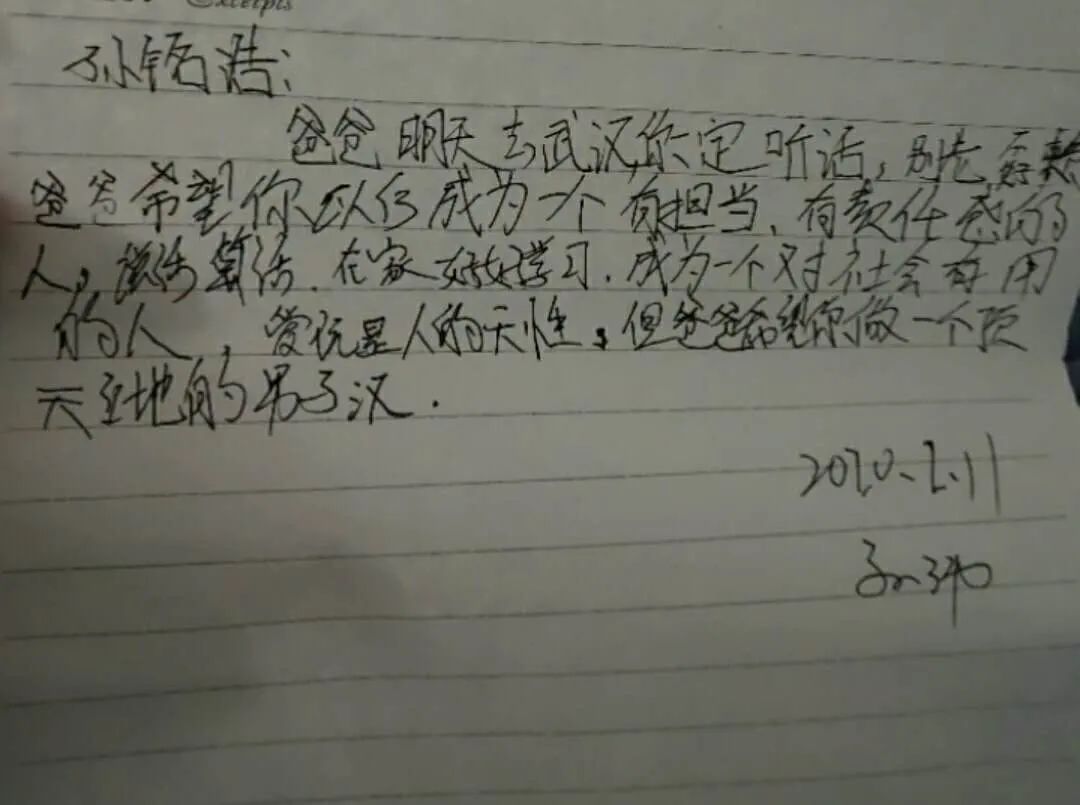 Excerpts
孙铭浩:
爸爸明天去武汉你定听话,别老
爸爸希望你以后成为一个有担当、有责任感的
人,说话算话.在家好好学习.成为一个对社会有用
的人,爱玩是人的天性,但爸爸希望你做一个顶
天立地的男子汉.
2020.2.11
孙